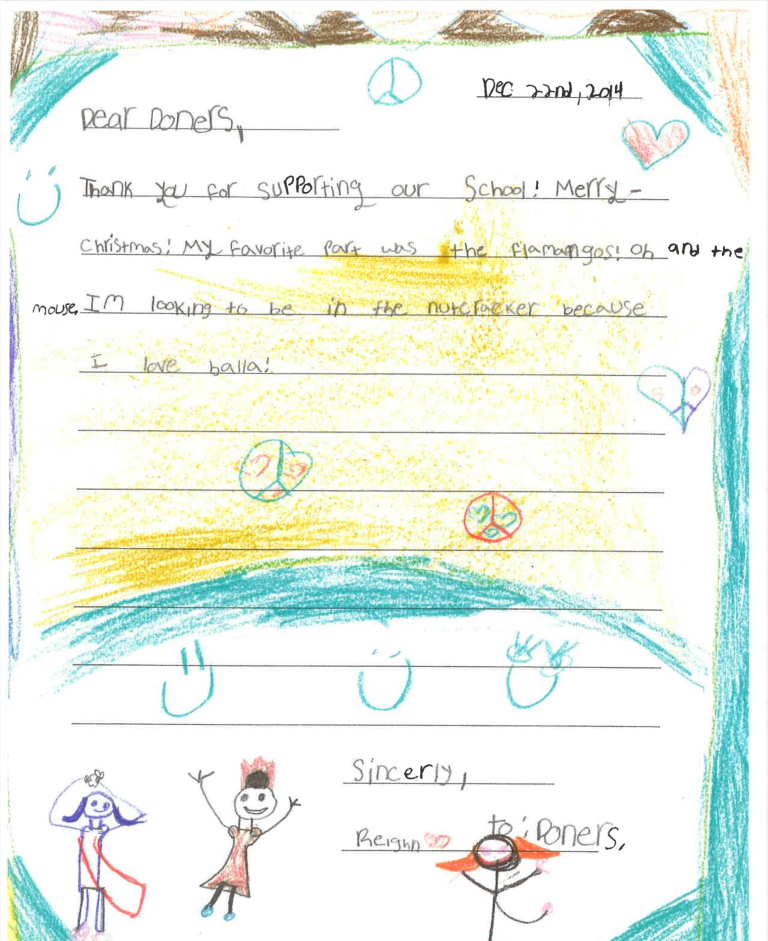 Dec 22nd, 2014
Dear Doners,
Thank you for supporting our School! Merry -
Christmas! My favorite part was the flamangos! Oh and the
mouse. IM looking to be in the nutcracker because
I love balla!
Sincerly,
Reighn to: Doners,